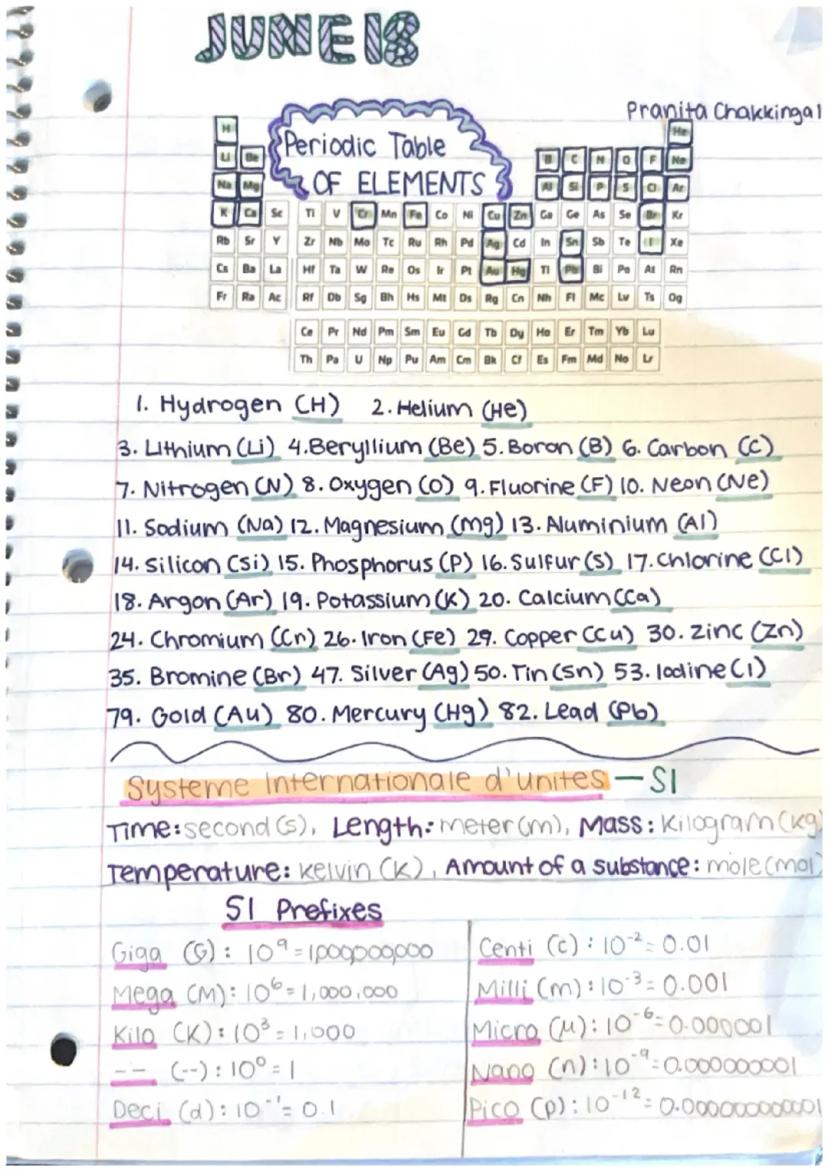 JUNE 18
Pranita Chakkingal
Periodic Table
OF ELEMENTS
H He
Li Be B C N O F Ne
Na Mg Al Si P S Cl Ar
K Ca Sc Ti V Cr Mn Fe Co Ni Cu Zn Ga Ge As Se Br Kr
Rb Sr Y Zr Nb Mo Tc Ru Rh Pd Ag Cd In Sn Sb Te I Xe
Cs Ba La Hf Ta W Re Os Ir Pt Au Hg Tl Pb Bi Po At Rn
Fr Ra Ac Rf Db Sg Bh Hs Mt Ds Rg Cn Nh Fl Mc Lv Ts Og
Ce Pr Nd Pm Sm Eu Gd Tb Dy Ho Er Tm Yb Lu
Th Pa U Np Pu Am Cm Bk Cf Es Fm Md No Lr
1. Hydrogen (H) 2. Helium (He)
3. Lithium (Li) 4. Beryllium (Be) 5. Boron (B) 6. Carbon (C)
7. Nitrogen (N) 8. Oxygen (O) 9. Fluorine (F) 10. Neon (Ne)
11. Sodium (Na) 12. Magnesium (Mg) 13. Aluminium (Al)
14. Silicon (Si) 15. Phosphorus (P) 16. Sulfur (S) 17. Chlorine (Cl)
18. Argon (Ar) 19. Potassium (K) 20. Calcium (Ca)
24. Chromium (Cr) 26. Iron (Fe) 29. Copper (Cu) 30. Zinc (Zn)
35. Bromine (Br) 47. Silver (Ag) 50. Tin (Sn) 53. Iodine (I)
79. Gold (Au) 80. Mercury (Hg) 82. Lead (Pb)
Systeme Internationale d'unites — SI
Time: second (s), Length: meter (m), Mass: Kilogram (kg)
Temperature: kelvin (K), Amount of a substance: mole (mol)
SI Prefixes
Giga (G): 10⁹ = 1,000,000,000
Mega (M): 10⁶ = 1,000,000
Kilo (K): 10³ = 1,000
-- (--): 10⁰ = 1
Deci (d): 10⁻¹ = 0.1
Centi (c): 10⁻² = 0.01
Milli (m): 10⁻³ = 0.001
Micro (μ): 10⁻⁶ = 0.000001
Nano (n): 10⁻⁹ = 0.000000001
Pico (p): 10⁻¹² = 0.000000000001